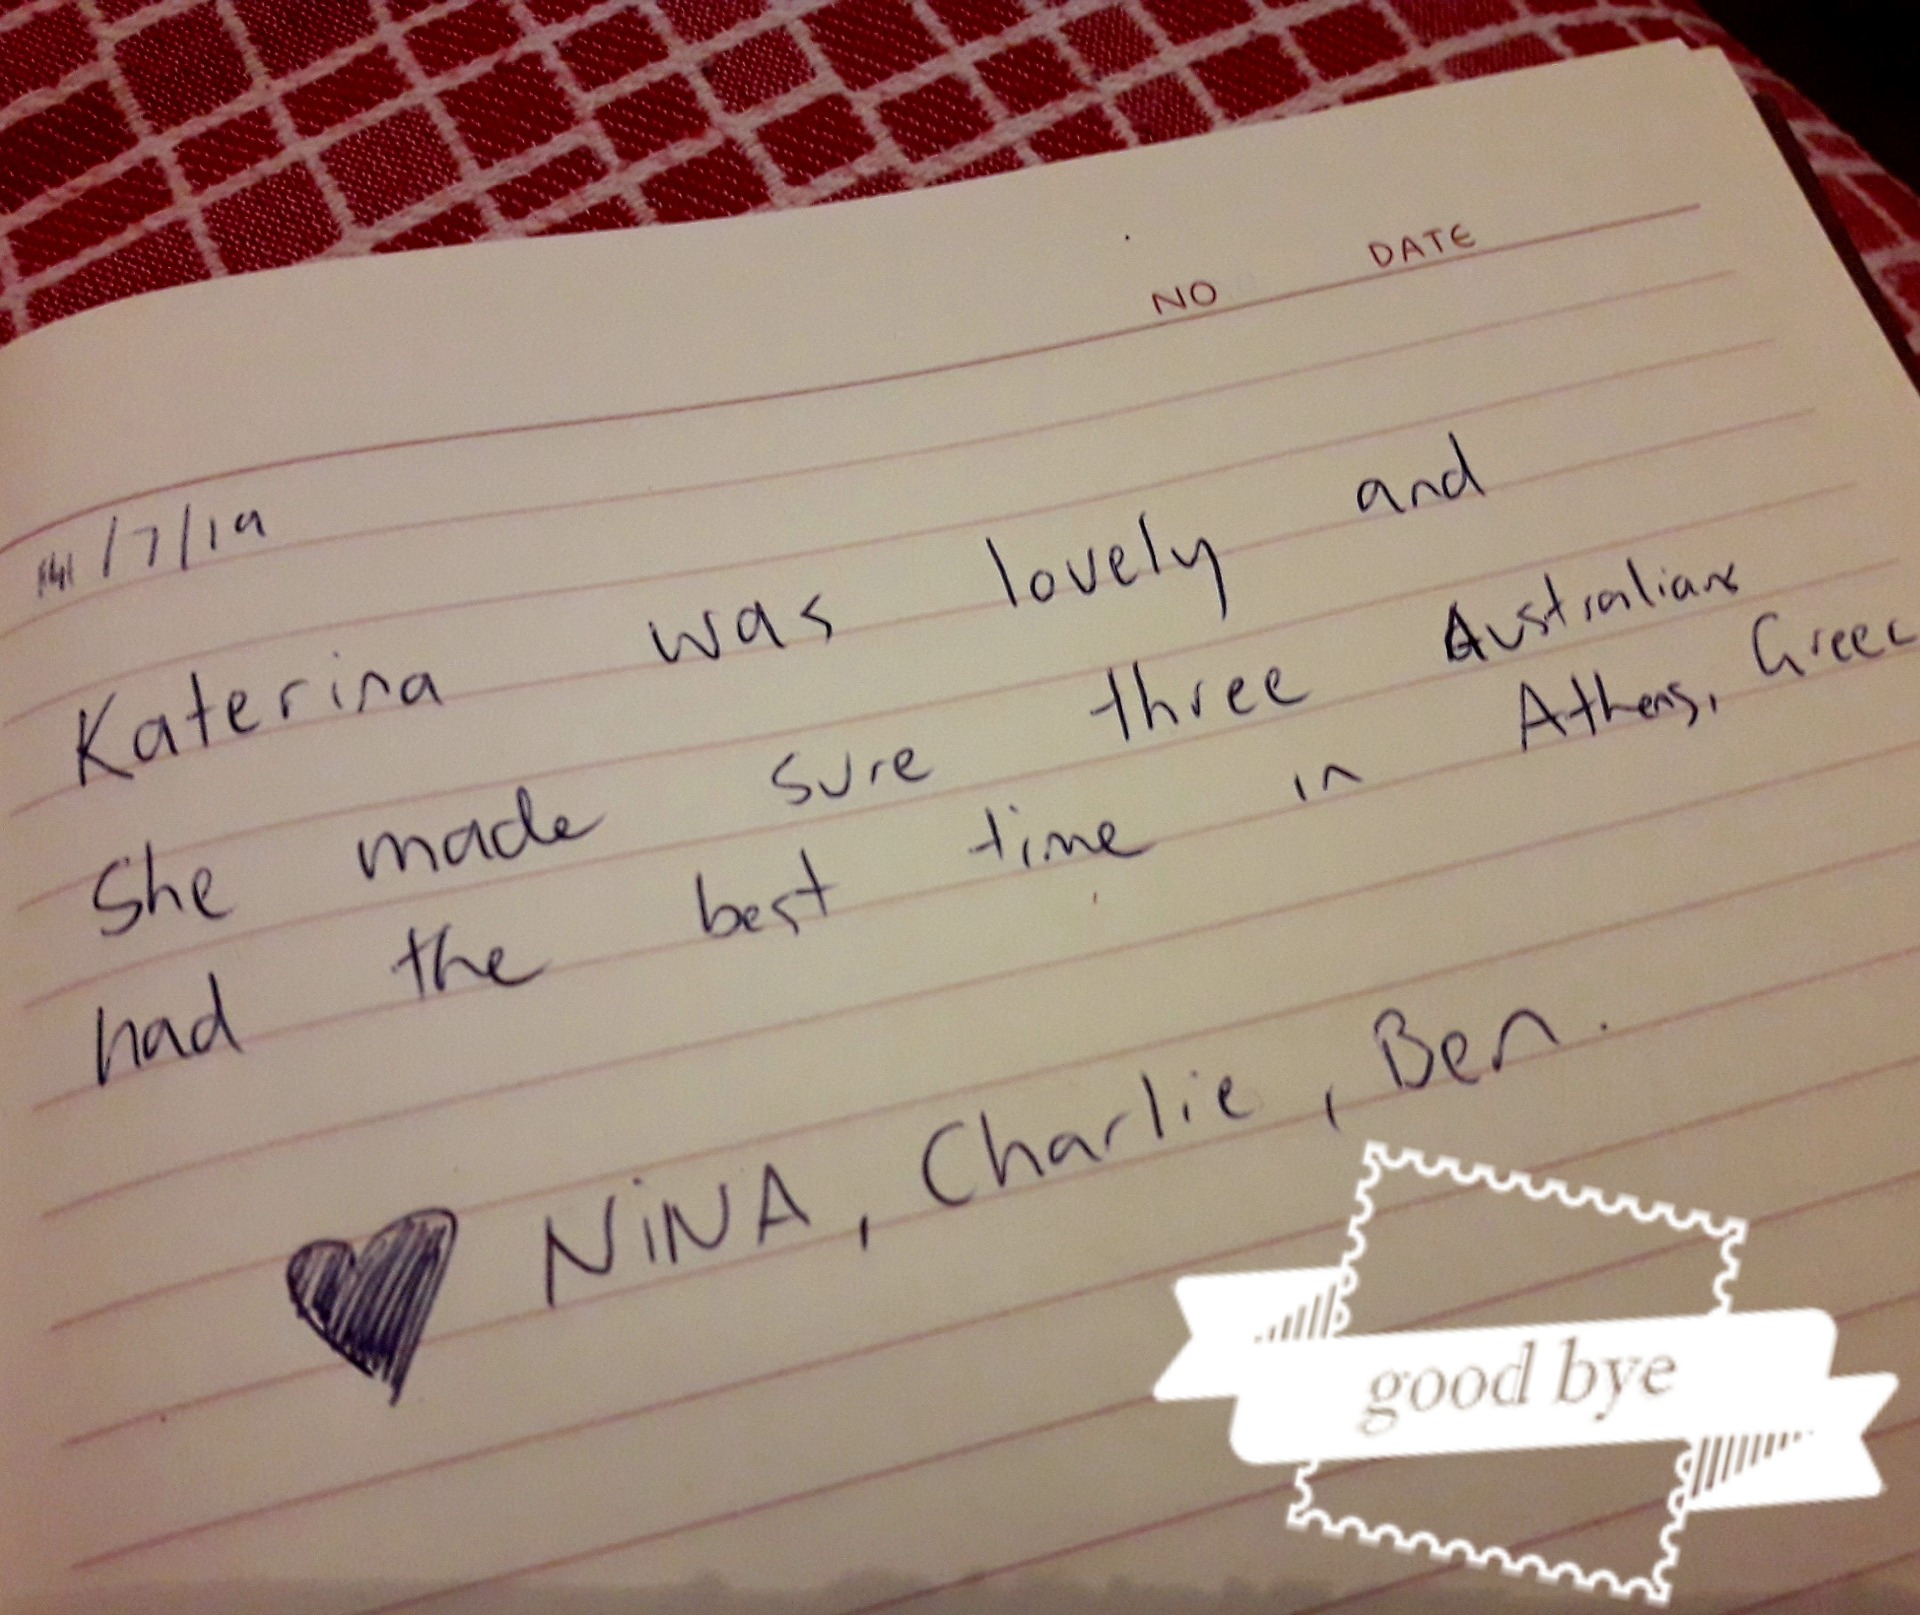 NO DATE
/7/19
Katerina was lovely and
She made sure three Australians
had the best time in Athens, Greec
NiNA, Charlie, Ben.
good bye